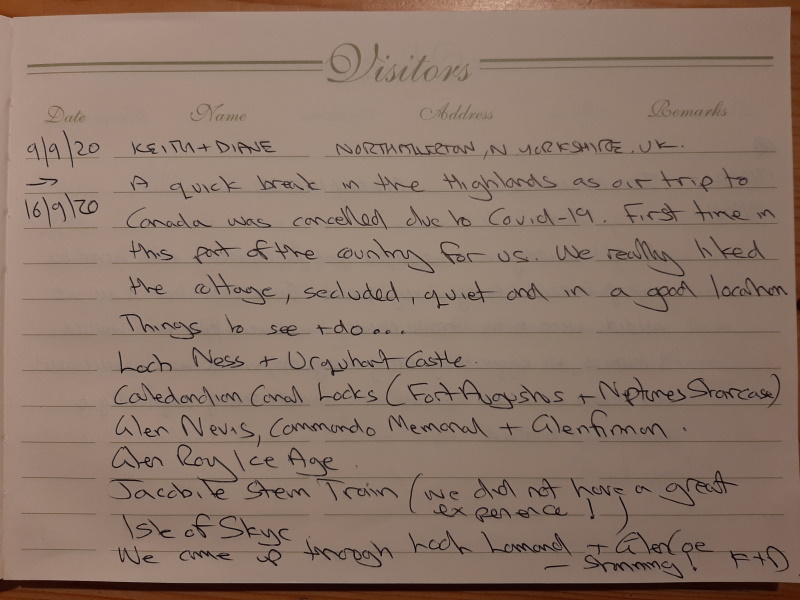 Visitors
Date Name Address Remarks
9/9/20 KEITH + DIANE NORTHALLERTON, N YORKSHIRE. UK.
→ A quick break in the Highlands as our trip to
16/9/20 Canada was cancelled due to Covid-19. First time in
this part of the country for us. We really liked
the cottage, secluded, quiet and in a good location
Things to see + do...
Loch Ness + Urquhart Castle.
Caledandian Canal Locks (Fort Augustus + Neptunes Starcase)
Glen Nevis, Commando Memorial + Glenfinnan.
Glen Roy Ice Age.
Jacobite Stem Train (we did not have a great
experience!)
Isle of Skye
We came up through Loch Lomond + Glencoe
– stunning! K+D